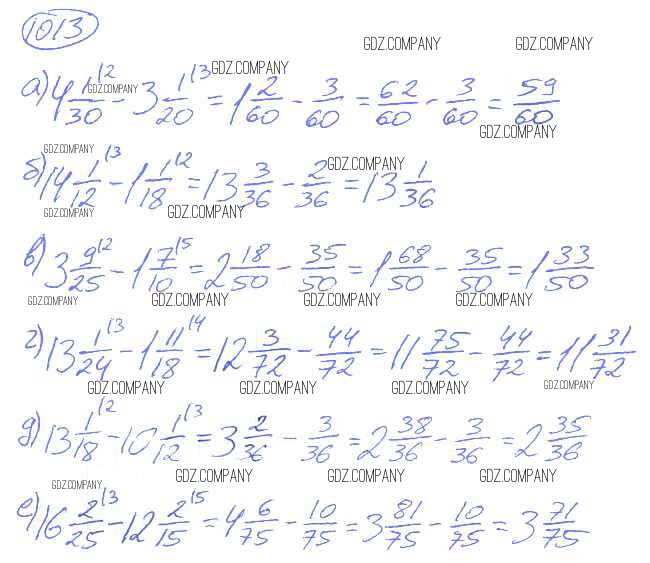 1013
GDZ.COMPANY GDZ.COMPANY
GDZ.COMPANY
GDZ.COMPANY
а) 4 1/30 |2 - 3 1/20 |3 = 1 2/60 - 3/60 = 62/60 - 3/60 = 59/60
GDZ.COMPANY
GDZ.COMPANY
GDZ.COMPANY
б) 14 1/12 |3 - 1 1/18 |2 = 13 3/36 - 2/36 = 13 1/36
GDZ.COMPANY GDZ.COMPANY
в) 3 9/25 |2 - 1 7/10 |5 = 2 18/50 - 35/50 = 1 68/50 - 35/50 = 1 33/50
GDZ.COMPANY GDZ.COMPANY GDZ.COMPANY GDZ.COMPANY
г) 13 1/24 |3 - 1 11/18 |4 = 12 3/72 - 44/72 = 11 75/72 - 44/72 = 11 31/72
GDZ.COMPANY GDZ.COMPANY GDZ.COMPANY GDZ.COMPANY
д) 13 1/18 |2 - 10 1/12 |3 = 3 2/36 - 3/36 = 2 38/36 - 3/36 = 2 35/36
GDZ.COMPANY GDZ.COMPANY GDZ.COMPANY GDZ.COMPANY
е) 16 2/25 |3 - 12 2/15 |5 = 4 6/75 - 10/75 = 3 81/75 - 10/75 = 3 71/75